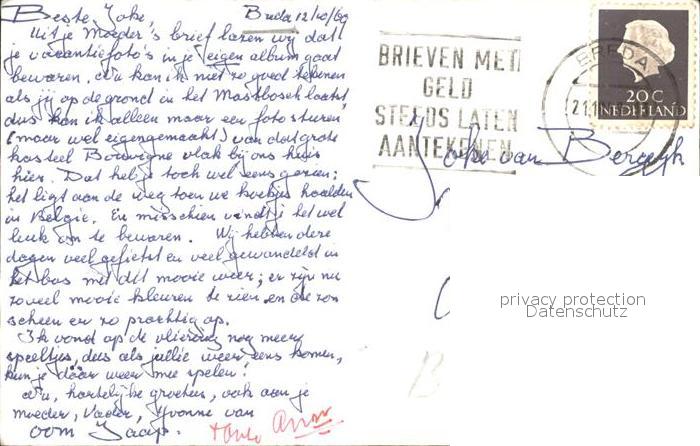 Beste Joke, Breda 12/10/69
Uit je Moeder's brief lazen wij dat
je vacantiefoto's in je eigen album gaat
bewaren. Nu kan ik niet zo goed tekenen
als jij op de grond in het Mastbosch laatst,
dus kan ik alleen maar een foto sturen
(maar wel eigengemaakt) van dat grote
kasteel Bouvigne vlak bij ons huis
hier. Dat heb je toch wel eens gezien;
het ligt aan de weg toen we koekjes haalden
in Belgie. En misschien vindt je het wel
leuk om te bewaren. Wij hebben deze
dagen veel gefietst en veel gewandeld in
het bos met dit mooie weer; er zijn nu
zoveel mooie kleuren te zien en de zon
scheen er zo prachtig op.
Ik vond op de vliering nog meer
speeltjes, dus als jullie weer eens komen,
kun je daar weer mee spelen!
Nu, hartelijke groeten, ook aan je
moeder, vader, Yvonne van
oom Jaap.
+ tante Anna
BRIEVEN MET
GELD
STEEDS LATEN
AANTEKENEN
BREDA
20 C
NEDERLAND
Joke van Bergeyk
privacy protection
Datenschutz